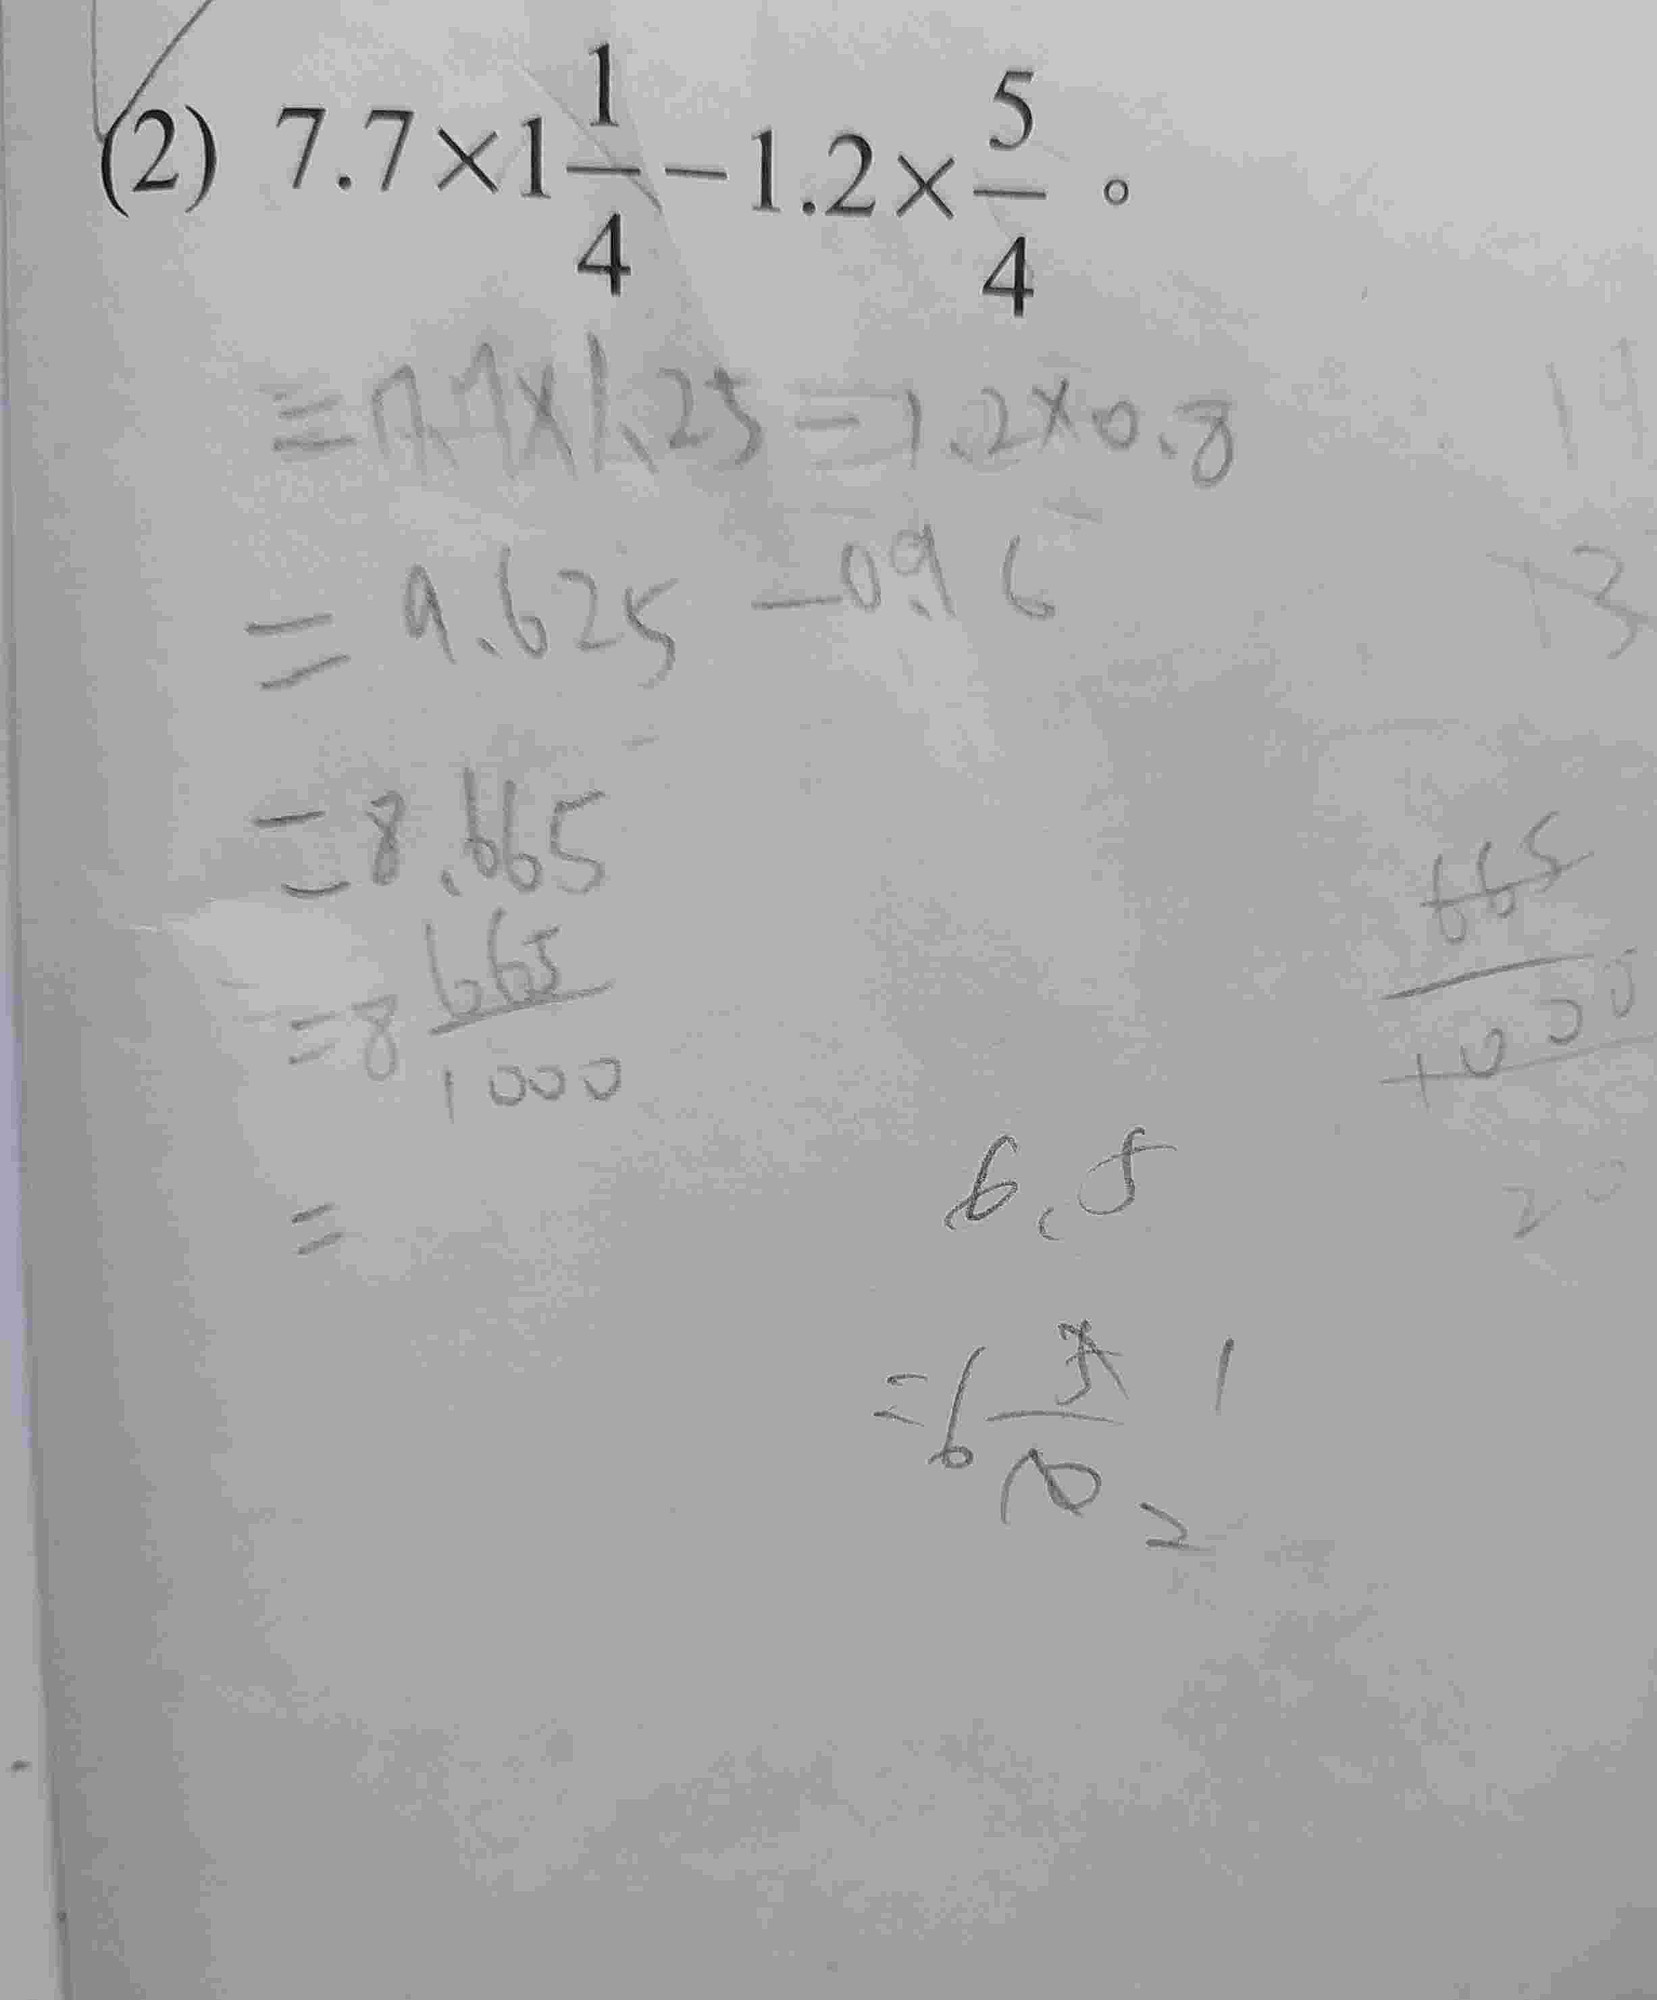 (2) 7.7×1 1/4 −1.2× 5/4 。
=7.7×1.25−1.2×0.8
=9.625−0.96
=8.665
=8 665/1000
=
665/1000
20
6.5
=6 5/10 1 2